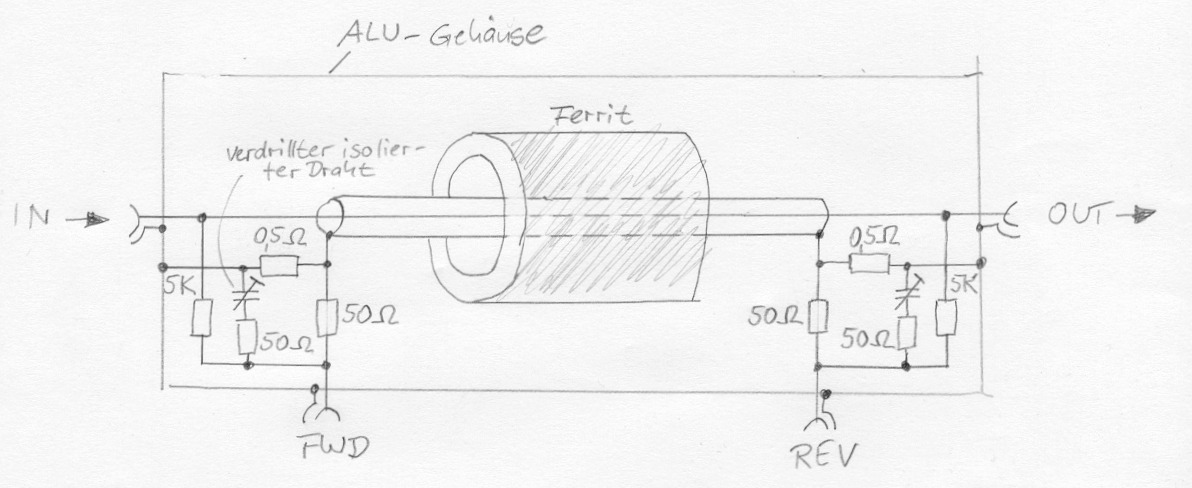 ALU-Gehäuse
Ferrit
verdrillter isolier-
ter Draht
IN
OUT
0,5Ω
0,5Ω
5K
5K
50Ω
50Ω
50Ω
50Ω
FWD
REV